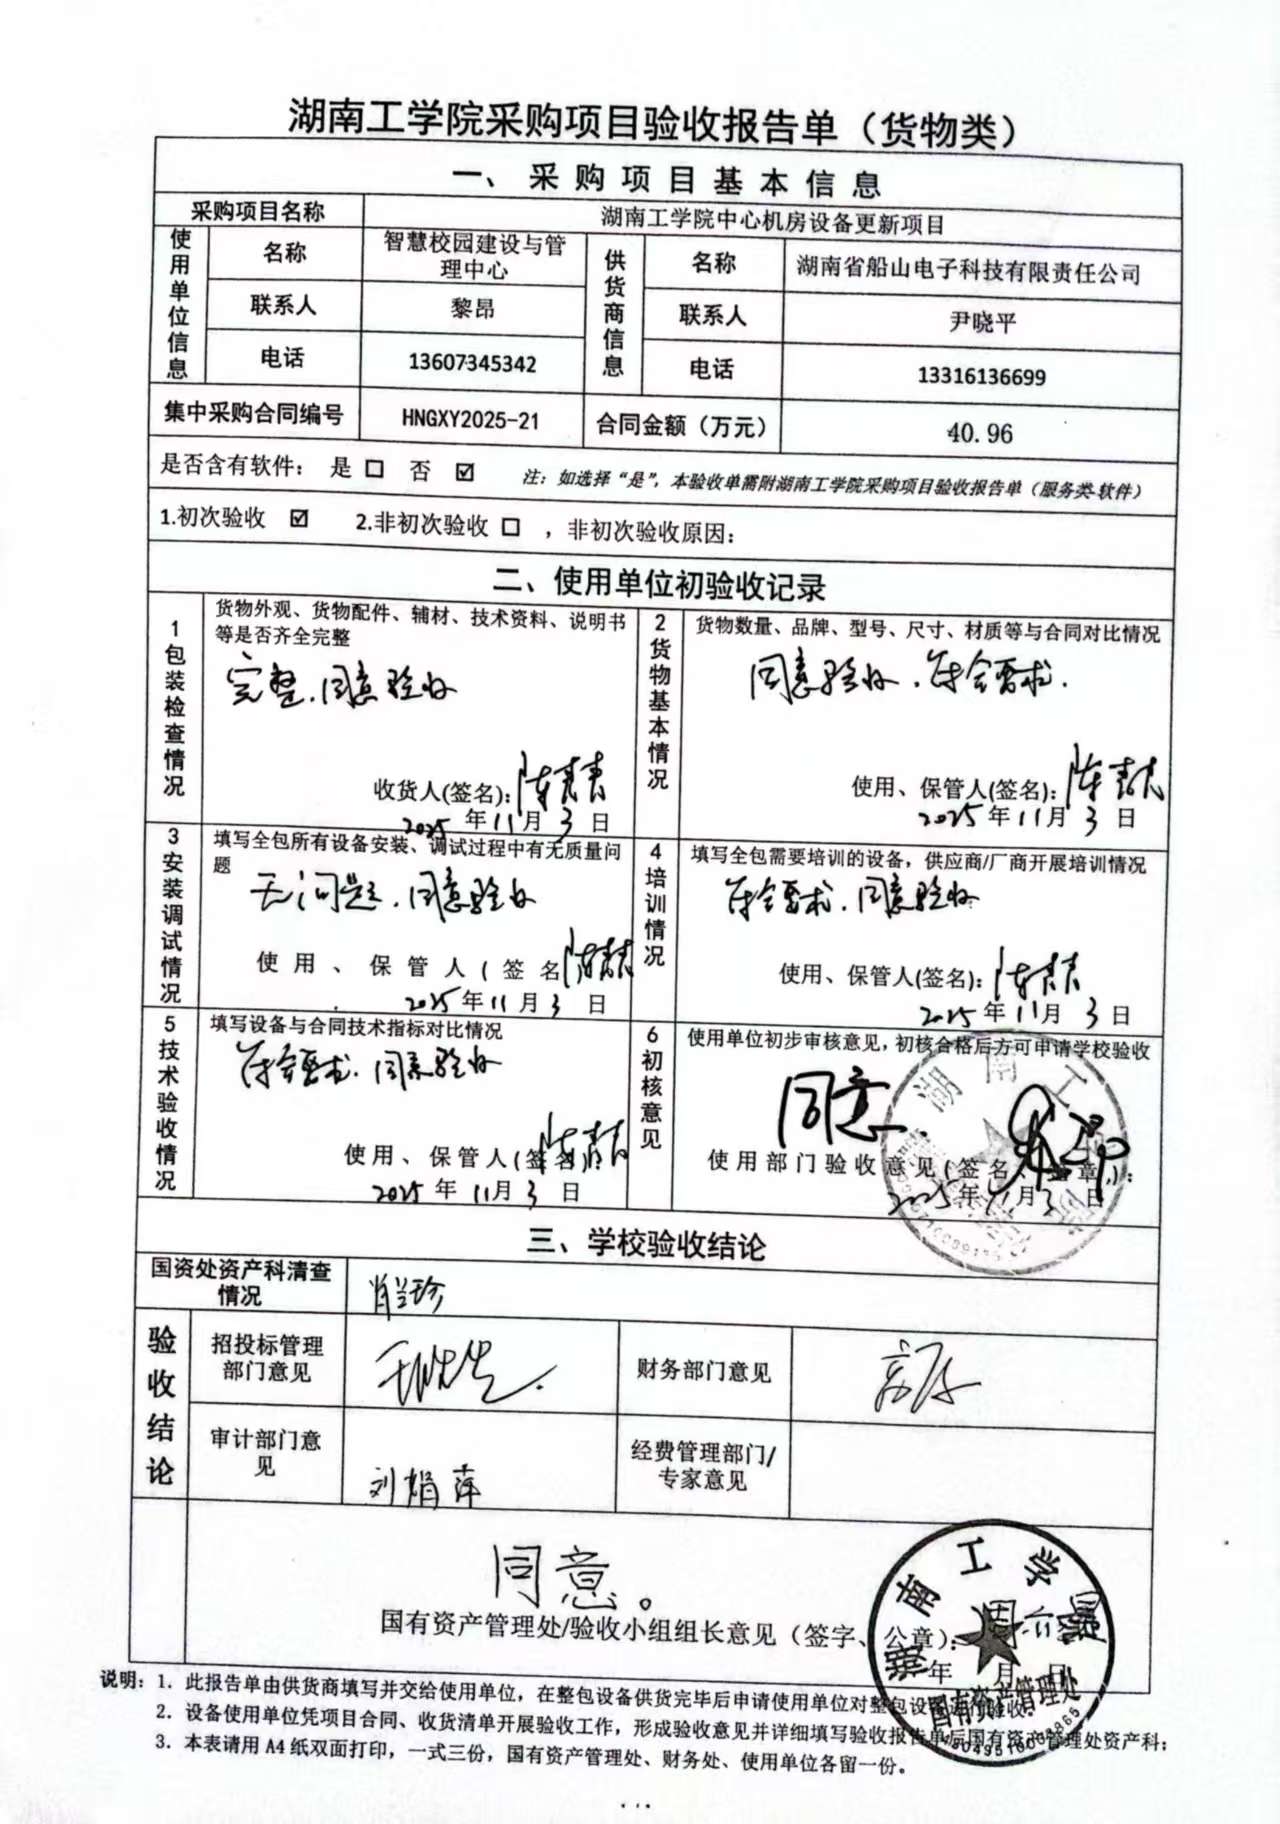 湖南工学院采购项目验收报告单（货物类）
一、采购项目基本信息
采购项目名称 湖南工学院中心机房设备更新项目
使用单位信息 名称 智慧校园建设与管理中心 供货商信息 名称 湖南省船山电子科技有限责任公司
联系人 黎昂 联系人 尹晓平
电话 13607345342 电话 13316136699
集中采购合同编号 HNGXY2025-21 合同金额（万元） 40.96
是否含有软件： 是 □ 否 ☑ 注：如选择“是”，本验收单需附湖南工学院采购项目验收报告单（服务类-软件）
1.初次验收 ☑ 2.非初次验收 □ ，非初次验收原因：
二、使用单位初验收记录
1包装检查情况
货物外观、货物配件、辅材、技术资料、说明书
等是否齐全完整
完整.同意验收
收货人(签名):
2025年11月3日
2货物基本情况
货物数量、品牌、型号、尺寸、材质等与合同对比情况
同意验收.符合要求.
使用、保管人(签名):
2025年11月3日
3安装调试情况
填写全包所有设备安装、调试过程中有无质量问
题
无问题.同意验收
使用、保管人(签名
2025年11月3日
4培训情况
填写全包需要培训的设备，供应商/厂商开展培训情况
符合要求.同意验收
使用、保管人(签名):
2025年11月3日
5技术验收情况
填写设备与合同技术指标对比情况
符合要求.同意验收
使用、保管人(签名
2025年11月3日
6初核意见
使用单位初步审核意见，初核合格后方可申请学校验收
同意.
使用部门验收意见(签名、盖章):
2025年11月3日
三、学校验收结论
国资处资产科清查
情况
验收结论
招投标管理
部门意见
财务部门意见
审计部门意
见
刘娟萍
经费管理部门/
专家意见
同意。
国有资产管理处/验收小组组长意见（签字、公章）：
年 月 日
湖南工学院
国有资产管理处
说明：1. 此报告单由供货商填写并交给使用单位，在整包设备供货完毕后申请使用单位对整包设备进行验收；
2. 设备使用单位凭项目合同、收货清单开展验收工作，形成验收意见并详细填写验收报告单后国有资产管理处资产科；
3. 本表请用A4纸双面打印，一式三份，国有资产管理处、财务处、使用单位各留一份。